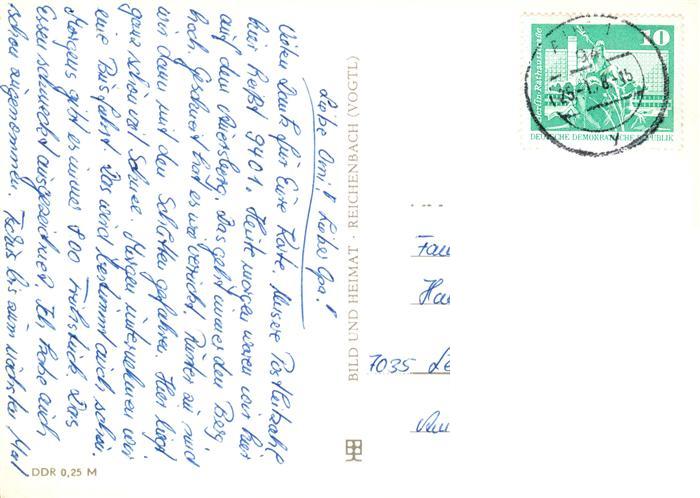 Liebe Omi! Lieber Opa!
Vielen Dank für Eure Karte. Unsere Postleitzahl
hier heißt 9401. Heute morgen waren wir hier
auf dem Das geht immer den Berg
hoch. Geschneit hat es wie verrückt. Runter zu sind
wir dann mit den Schlitten gefahren. Hier liegt
ganz schön viel Schnee. Morgen unternehmen wir
eine Busfahrt. Das wird bestimmt auch schön.
Morgens gibt es immer 8.00 Frühstück. Das
Essen schmeckt ausgezeichnet. Ich habe auch
schon zugenommen. Tschüs bis zum nächsten Mal
DDR 0,25 M
BILD UND HEIMAT · REICHENBACH (VOGTL)
Berlin-Rathausstraße
10
DEUTSCHE DEMOKRATISCHE REPUBLIK
Fam
Ha
7035 Le